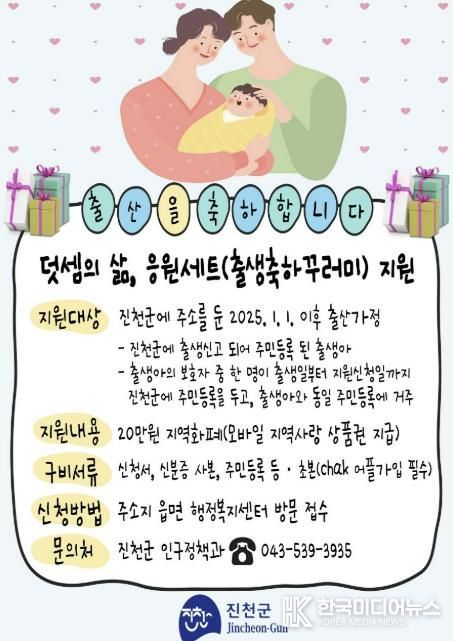 출산을축하합니다
덧셈의 삶, 응원세트(출생축하꾸러미) 지원
지원대상 진천군에 주소를 둔 2025. 1. 1. 이후 출산가정
- 진천군에 출생신고 되어 주민등록 된 출생아
- 출생아의 보호자 중 한 명이 출생일부터 지원신청일까지
진천군에 주민등록을 두고, 출생아와 동일 주민등록에 거주
지원내용 20만원 지역화폐(모바일 지역사랑 상품권 지급)
구비서류 신청서, 신분증 사본, 주민등록 등·초본(chak 어플가입 필수)
신청방법 주소지 읍면 행정복지센터 방문 접수
문의처 진천군 인구정책과 ☎ 043-539-3935
진천 진천군
Jincheon-Gun
HK 한국미디어뉴스
KOREA MEDIA NEWS